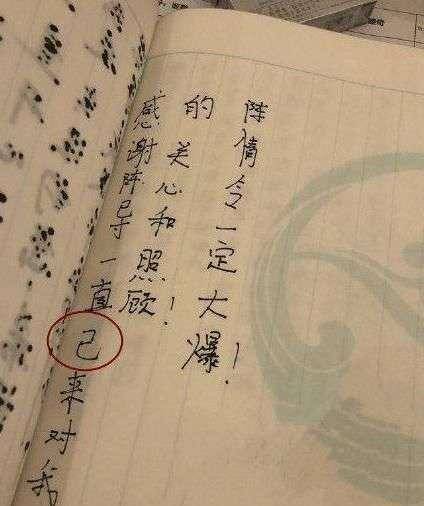 感谢阵导一直己来对我
的关心和照顾！
阵情令一定大爆！